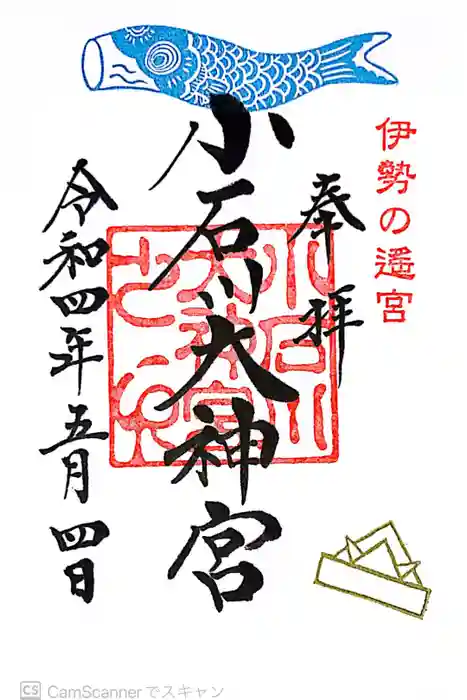 伊勢の遥宮
奉拝
小石川大神宮
令和四年五月四日
CS CamScannerでスキャン